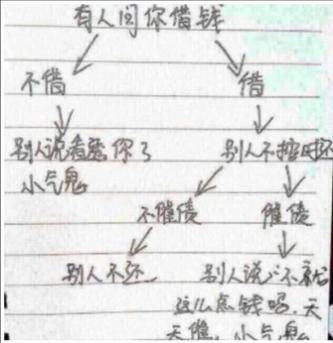 有人问你借钱
不借 借
别人说看透你了 别人不按时还
小气鬼
不催债 催债
别人不还 别人说:不就
这么点钱吗,天
天催,小气鬼